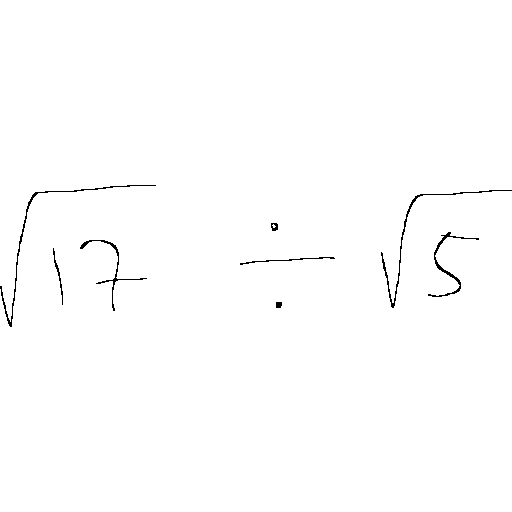 √17 ÷ √5